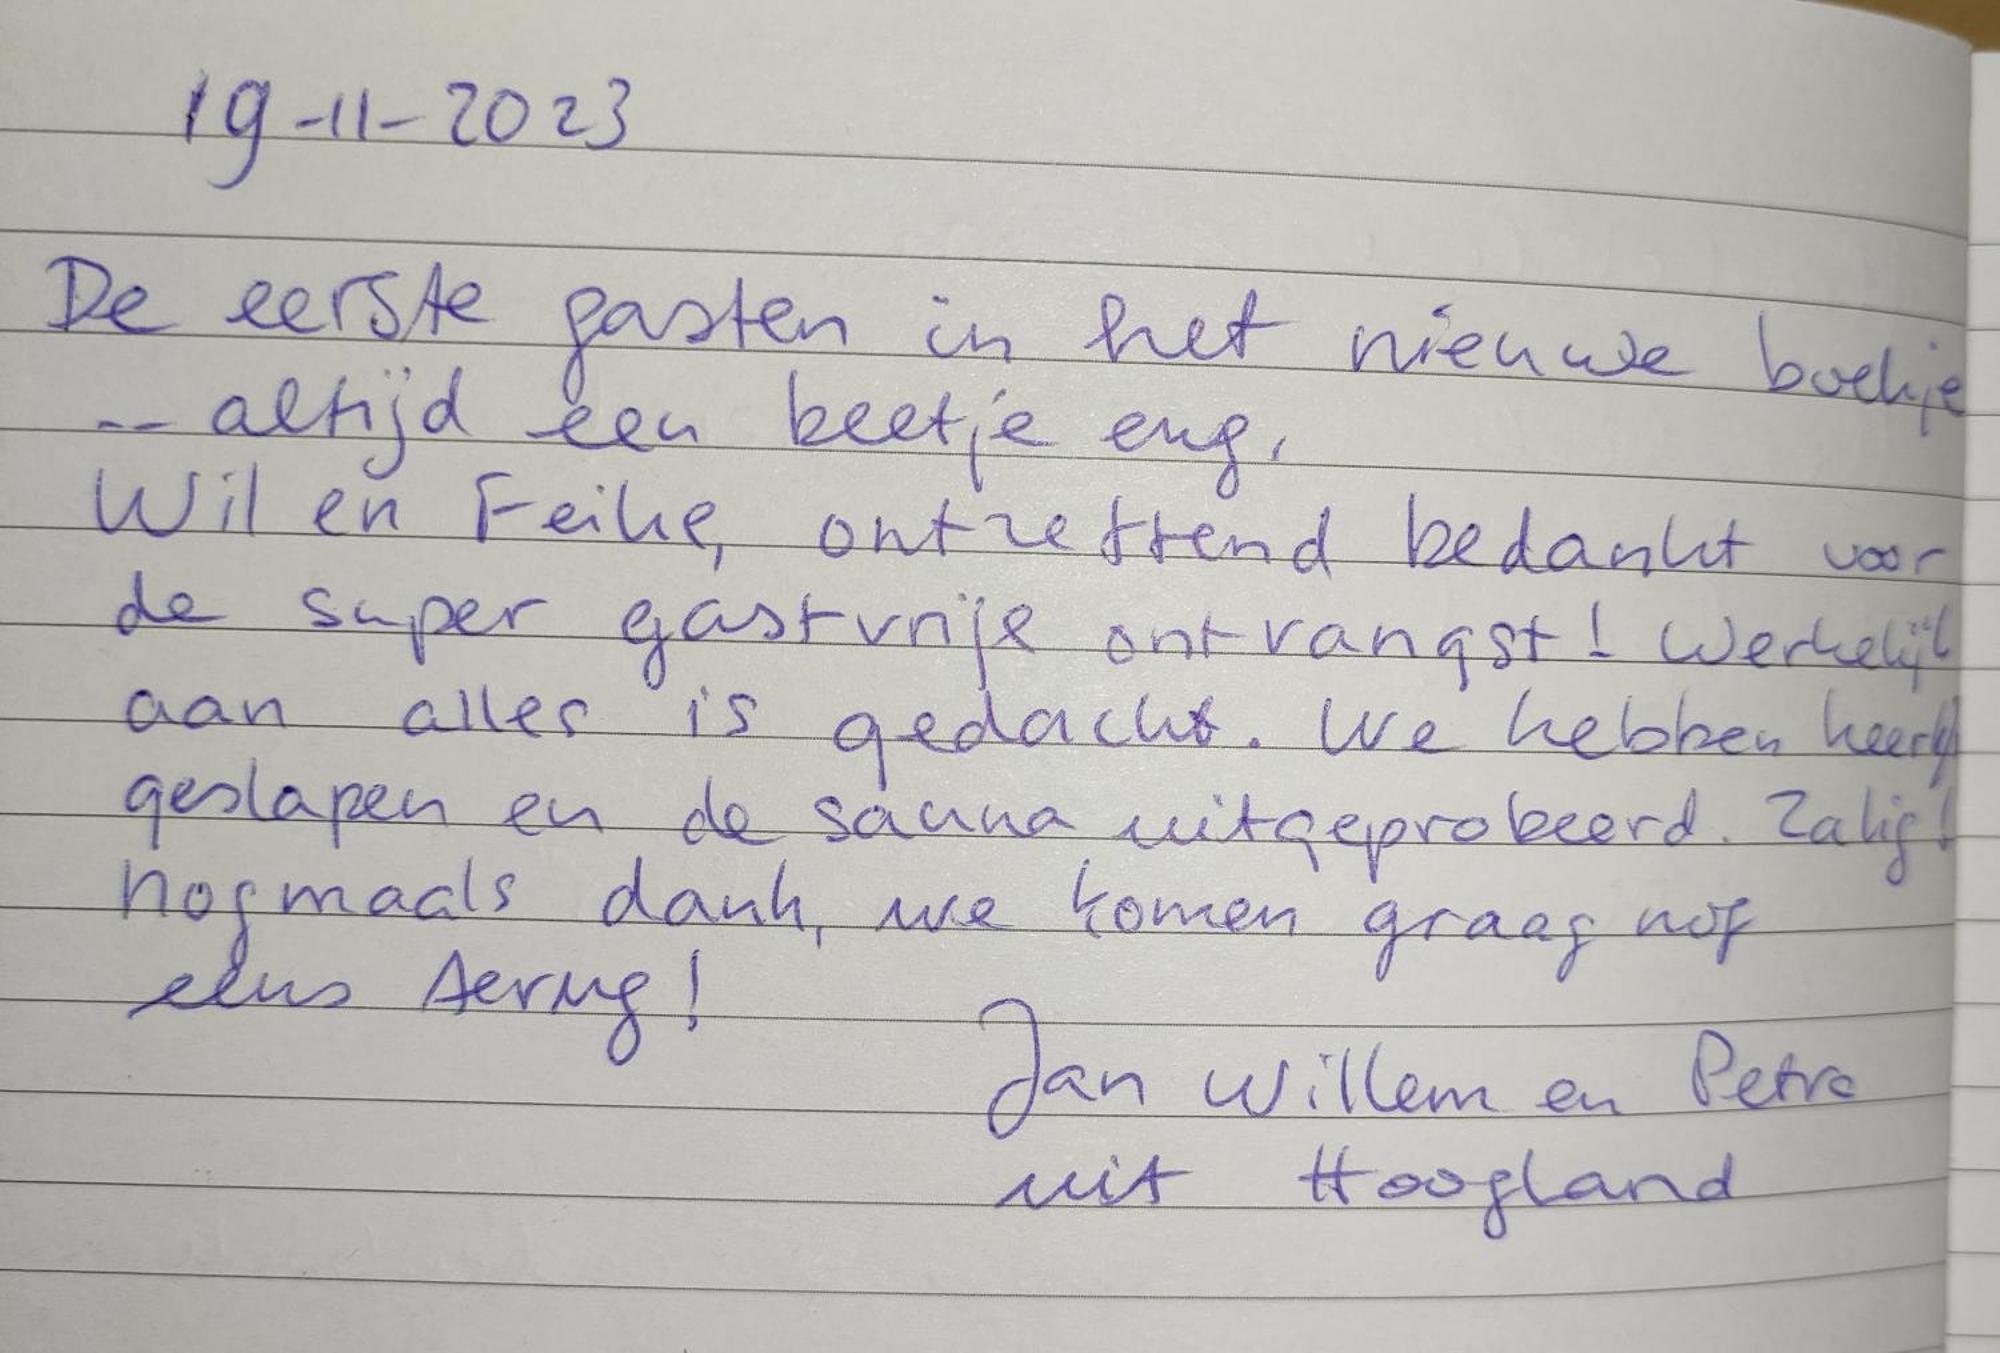 19-11-2023
De eerste gasten in het nieuwe boekje
-- altijd een beetje eng.
Wil en Feike, ontzettend bedankt voor
de super gastvrije ontvangst! Werkelijk
aan alles is gedacht. We hebben heerlijk
geslapen en de sauna uitgeprobeerd. Zalig!
Nogmaals dank, we komen graag nog
eens terug!
Jan Willem en Petra
uit Hoogland